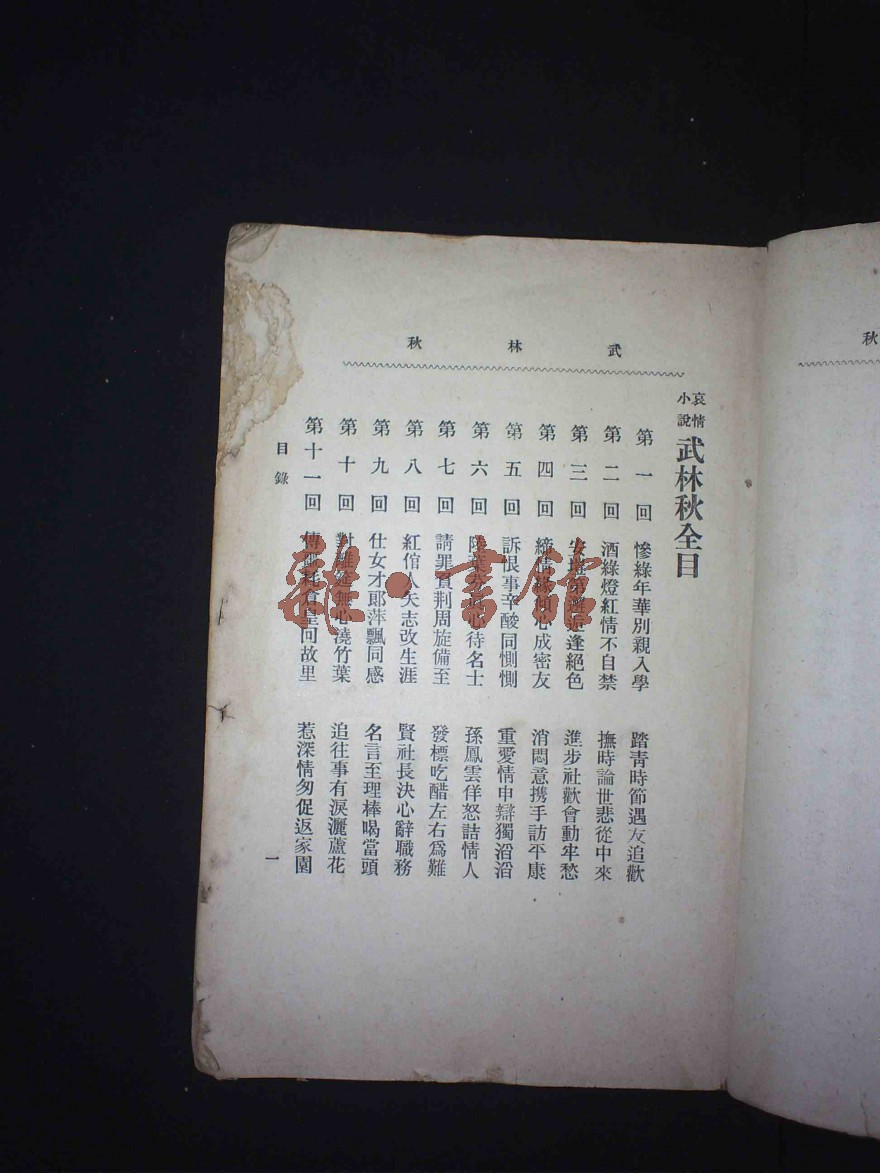 武林秋
哀情小說 武林秋全目
第一回 慘綠年華別親入學 踏青時節遇友追歡
第二回 酒綠燈紅情不自禁 撫時論世悲從中來
第三回 安塏第邂逅逢絕色 進步社歡會動牢愁
第四回 締情緣傾心成密友 消悶意携手訪平康
第五回 訴恨事辛酸同惻惻 重愛情申辯獨滔滔
第六回 陸 心待名士 孫鳳雲佯怒詰情人
第七回 請罪負荆周旋備至 發標吃醋左右爲難
第八回 紅倌人矢志改生涯 賢社長決心辭職務
第九回 仕女才郞萍飄同感 名言至理棒喝當頭
第十回 對離筵無心澆竹葉 追往事有淚灑蘆花
第十一回 傳 耗倉皇回故里 惹深情匆促返家園
目錄
一
秋
雜·書館